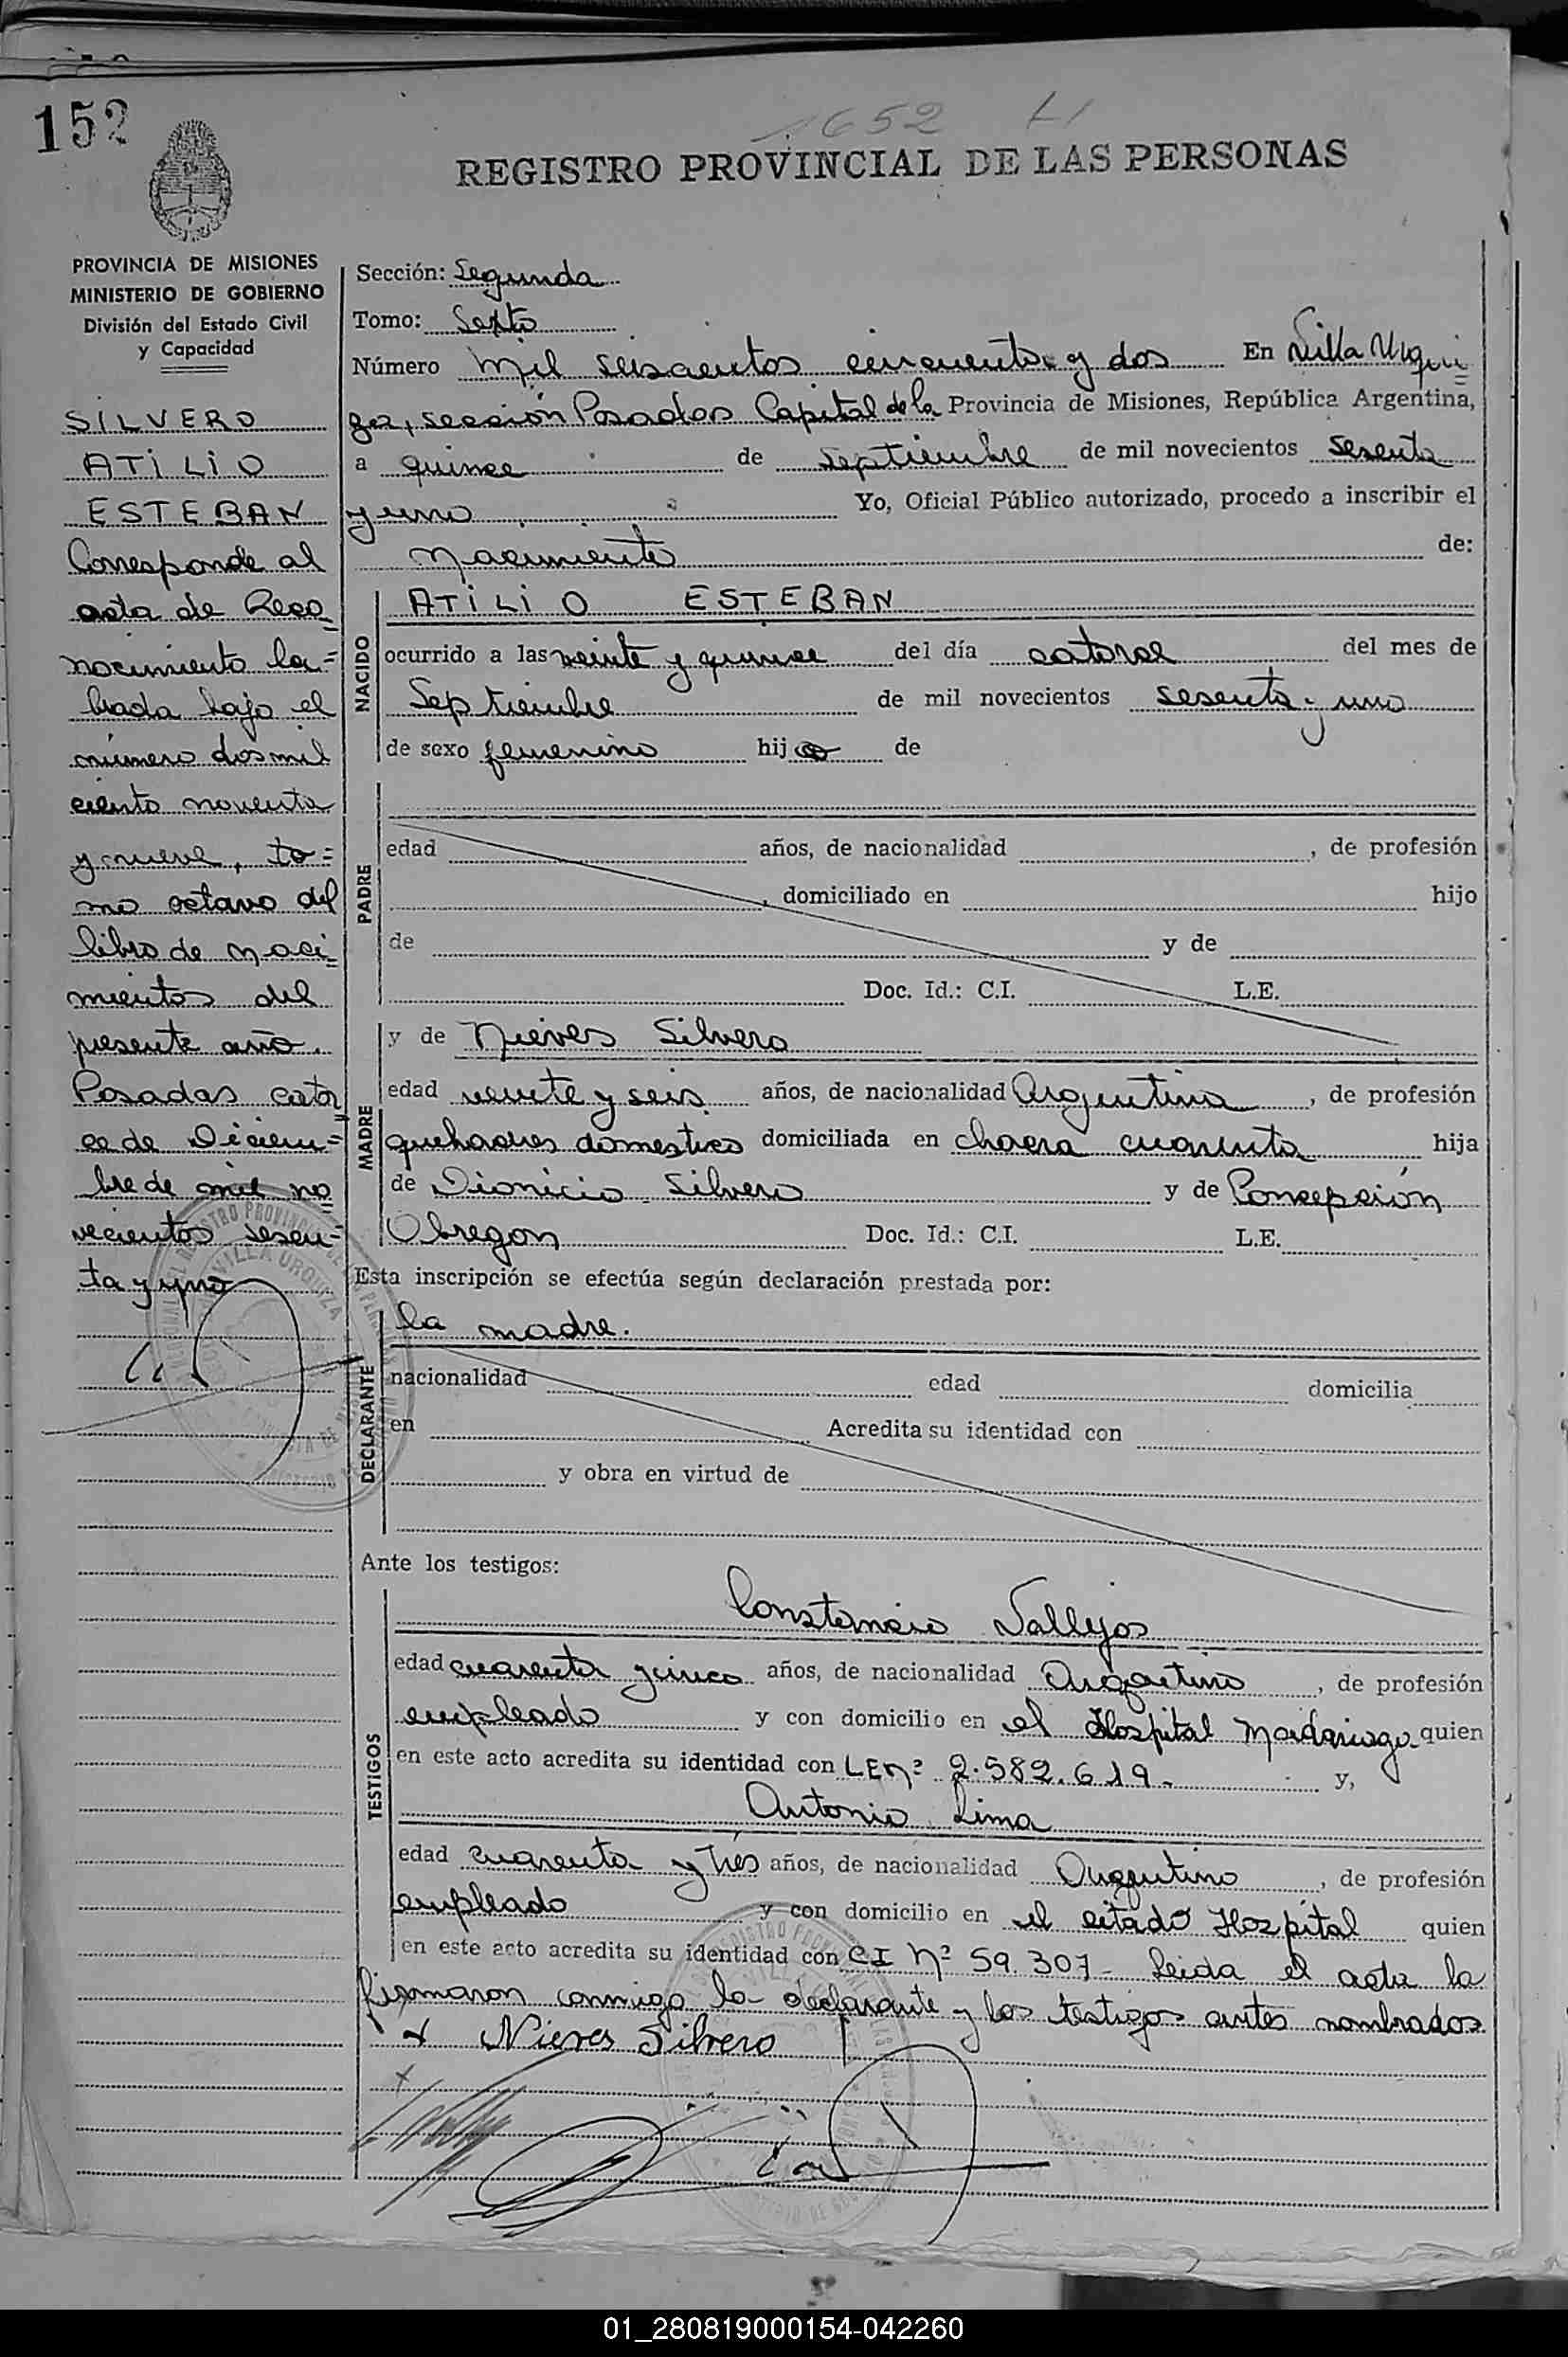 152
1652 L1
REGISTRO PROVINCIAL DE LAS PERSONAS
PROVINCIA DE MISIONES
MINISTERIO DE GOBIERNO
División del Estado Civil
y Capacidad
SILVERO
ATILIO
ESTEBAN
Corresponde al
acta de Reco=
nocimiento la=
brada bajo el
número dos mil
ciento noventa
y nueve, to=
mo octavo del
libro de naci=
mientos del
presente año.
Posadas cator
ce de Diciem=
bre de mil no
vecientos sesen=
ta y uno
Sección: Segunda
Tomo: Sexto
Número mil seiscientos cincuenta y dos En Villa Urqui=
za, sección Posadas Capital de la Provincia de Misiones, República Argentina,
a quince de Septiembre de mil novecientos sesenta
y uno Yo, Oficial Público autorizado, procedo a inscribir el
nacimiento de:
NACIDO
ATILIO ESTEBAN
ocurrido a las veinte y quince del día catorce del mes de
Septiembre de mil novecientos sesenta y uno
de sexo femenino hij de
PADRE
edad años, de nacionalidad , de profesión
, domiciliado en hijo
de y de
Doc. Id.: C.I. L.E.
MADRE
y de Nieves Silvero
edad veinte y seis años, de nacionalidad Argentina , de profesión
quehaceres domestico domiciliada en chacra cuarenta hija
de Dionicio Silvero y de Concepción
Obregon Doc. Id.: C.I. L.E.
Esta inscripción se efectúa según declaración prestada por:
DECLARANTE
la madre.
nacionalidad edad domicilia
en Acredita su identidad con
y obra en virtud de
Ante los testigos:
TESTIGOS
Constancio Vallejos
edad cuarenta y cinco años, de nacionalidad Argentino , de profesión
empleado y con domicilio en el Hospital Madariaga quien
en este acto acredita su identidad con LE nº 2.582.619- y,
Antonio Lima
edad cuarenta y tres años, de nacionalidad Argentino , de profesión
empleado y con domicilio en el citado Hospital quien
en este acto acredita su identidad con CI Nº 59.307- Leida el acta la
firmaron conmigo la declarante y los testigos antes nombrados
x Nieves Silvero
01_280819000154-042260